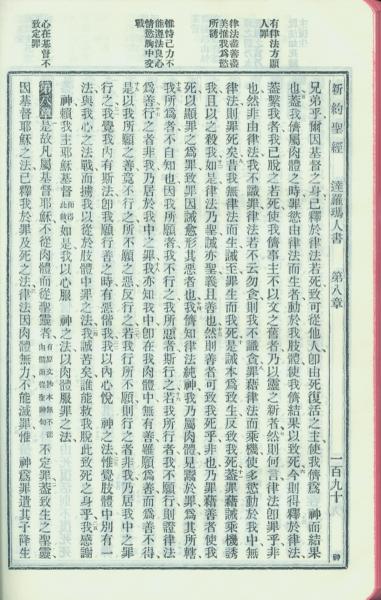 有律法方顯
人罪
律法盡善盡
美惟我爲慾
所誘
惟恃己力不
能遵法良心
情慾胸中交
戰
心在基督不
致定罪
新約聖經 達羅瑪人書 第八章 一百九十
兄弟乎爾因基督之身已釋於律法若死致可從他人卽由死復活之主使我儕爲 神而結果
也蓋我儕屬肉體之時罪慾由律法而生者動於我肢體使我儕結果以致死今則得釋於律法
蓋繫我者我已脫之若死使我儕事主不以文之舊者乃以靈之新者然則何言律法卽罪乎非
也然非由律法我不識罪律法若不云勿貪則我不識貪罪藉律法而乘機使多慾動於我中無
律法則罪死矣昔我無律法而生誡至罪生而我死是誡本爲致生反致我死蓋罪藉誡乘機誘
我且以之殺我如是律法乃聖誡亦聖義且善也然則善者可致我死乎非也乃罪藉善者使我
死以顯罪之爲罪致罪因誡愈形其惡者也我儕知律法純神我乃屬肉體見鬻於罪爲其所轄
我所爲者不自知也因我所願者我不行之我所惡者斯行之若我所行者我不願行則證律法
爲善行之者非我乃居於我中之罪我亦知我中卽在我肉體中無有善雖願爲善而爲善不得
是以我所願之善焉不行之所不願之惡反行之若我行所不願則行之者非我乃居我中之罪
行之我覺我內有斯法卽我願行善之時有惡偕我我以內心悅 神之法惟覺肢體中別有一
法與我心之法戰而擄我以從於肢體中罪之法我誠苦矣誰能救我脫此致死之身乎我感謝
神賴我主耶穌基督而得此救如是我以心服 神之法以肉體服罪之法
第八章是故凡屬基督耶穌不從肉體而從聖靈者 不定罪蓋致生之聖靈
因基督耶穌之法已釋我於罪及死之法律法因肉體無力不能滅罪惟 神爲罪遣其子降生